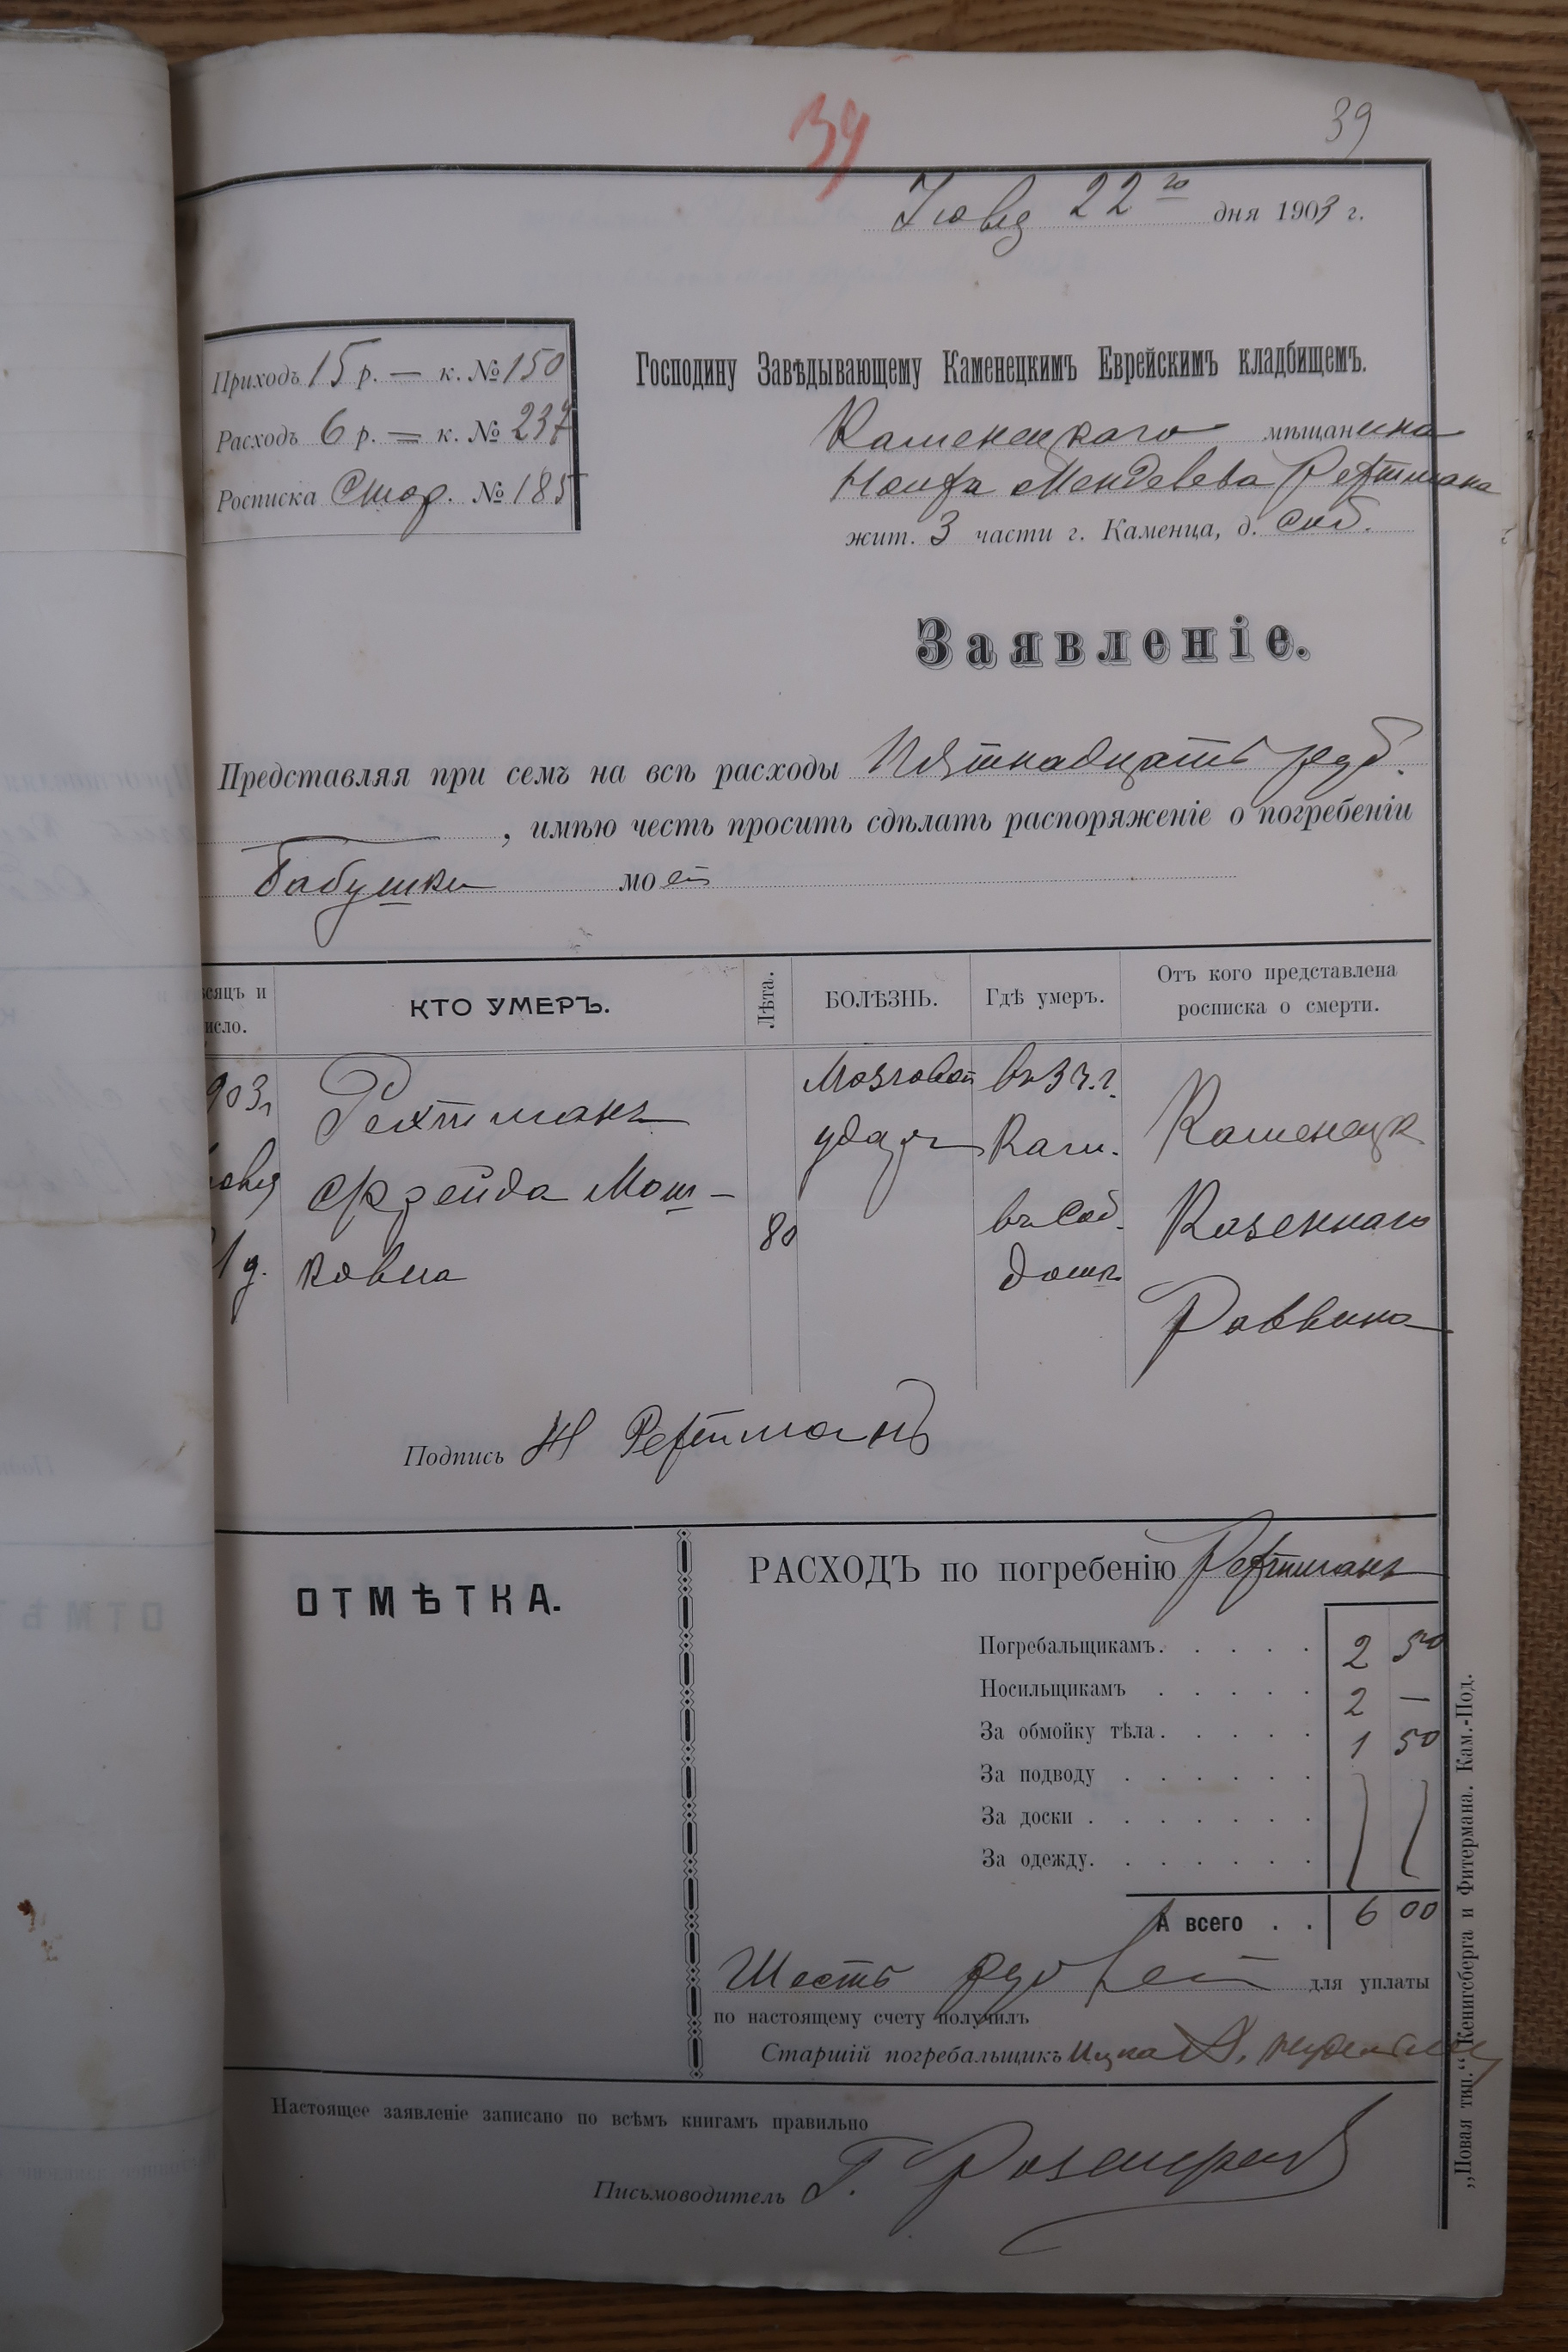 39
39
Іюня 22го дня 1903 г.
Приходъ 15 р. — к. № 150
Расходъ 6 р. = к. № 237
Росписка Стор. № 185
Господину Завѣдывающему Каменецкимъ Еврейскимъ кладбищемъ.
Каменецкаго мѣщанина
Менделева Рехтмана
жит. 3 части г. Каменца, д. соб.
Заявленіе.
Представляя при семъ на всѣ расходы Пятнадцать руб.
, имѣю честь просить сдѣлать распоряженіе о погребеніи
бабушки моей
сяцъ и
исло.
КТО УМЕРЪ.
Лѣта.
БОЛѢЗНЬ.
Гдѣ умеръ.
Отъ кого представлена
росписка о смерти.
903г
1 д.
Рехтманъ
Фрейда Мош-
ковна
80
Мозговой
ударъ
въ 3 ч. г.
Кам.
въ соб.
домѣ
Каменецк
Казеннаго
Раввина
Подпись Рехтманъ
ОТМѢТКА.
РАСХОДЪ по погребенію Рехтманъ
Погребальщикамъ. . . . . 2 50
Носильщикамъ . . . . . 2 —
За обмойку тѣла. . . . . 1 50
За подводу . . . . . .
За доски . . . . . . .
За одежду. . . . . . .
А всего . . 6 00
Шесть рублей для уплаты
по настоящему счету получилъ
Старшій погребальщикъ Ицка
Настоящее заявленіе записано по всѣмъ книгамъ правильно
Письмоводитель Г.
„Новая тип.“ Кенигсберга и Фитермана. Кам.-Под.